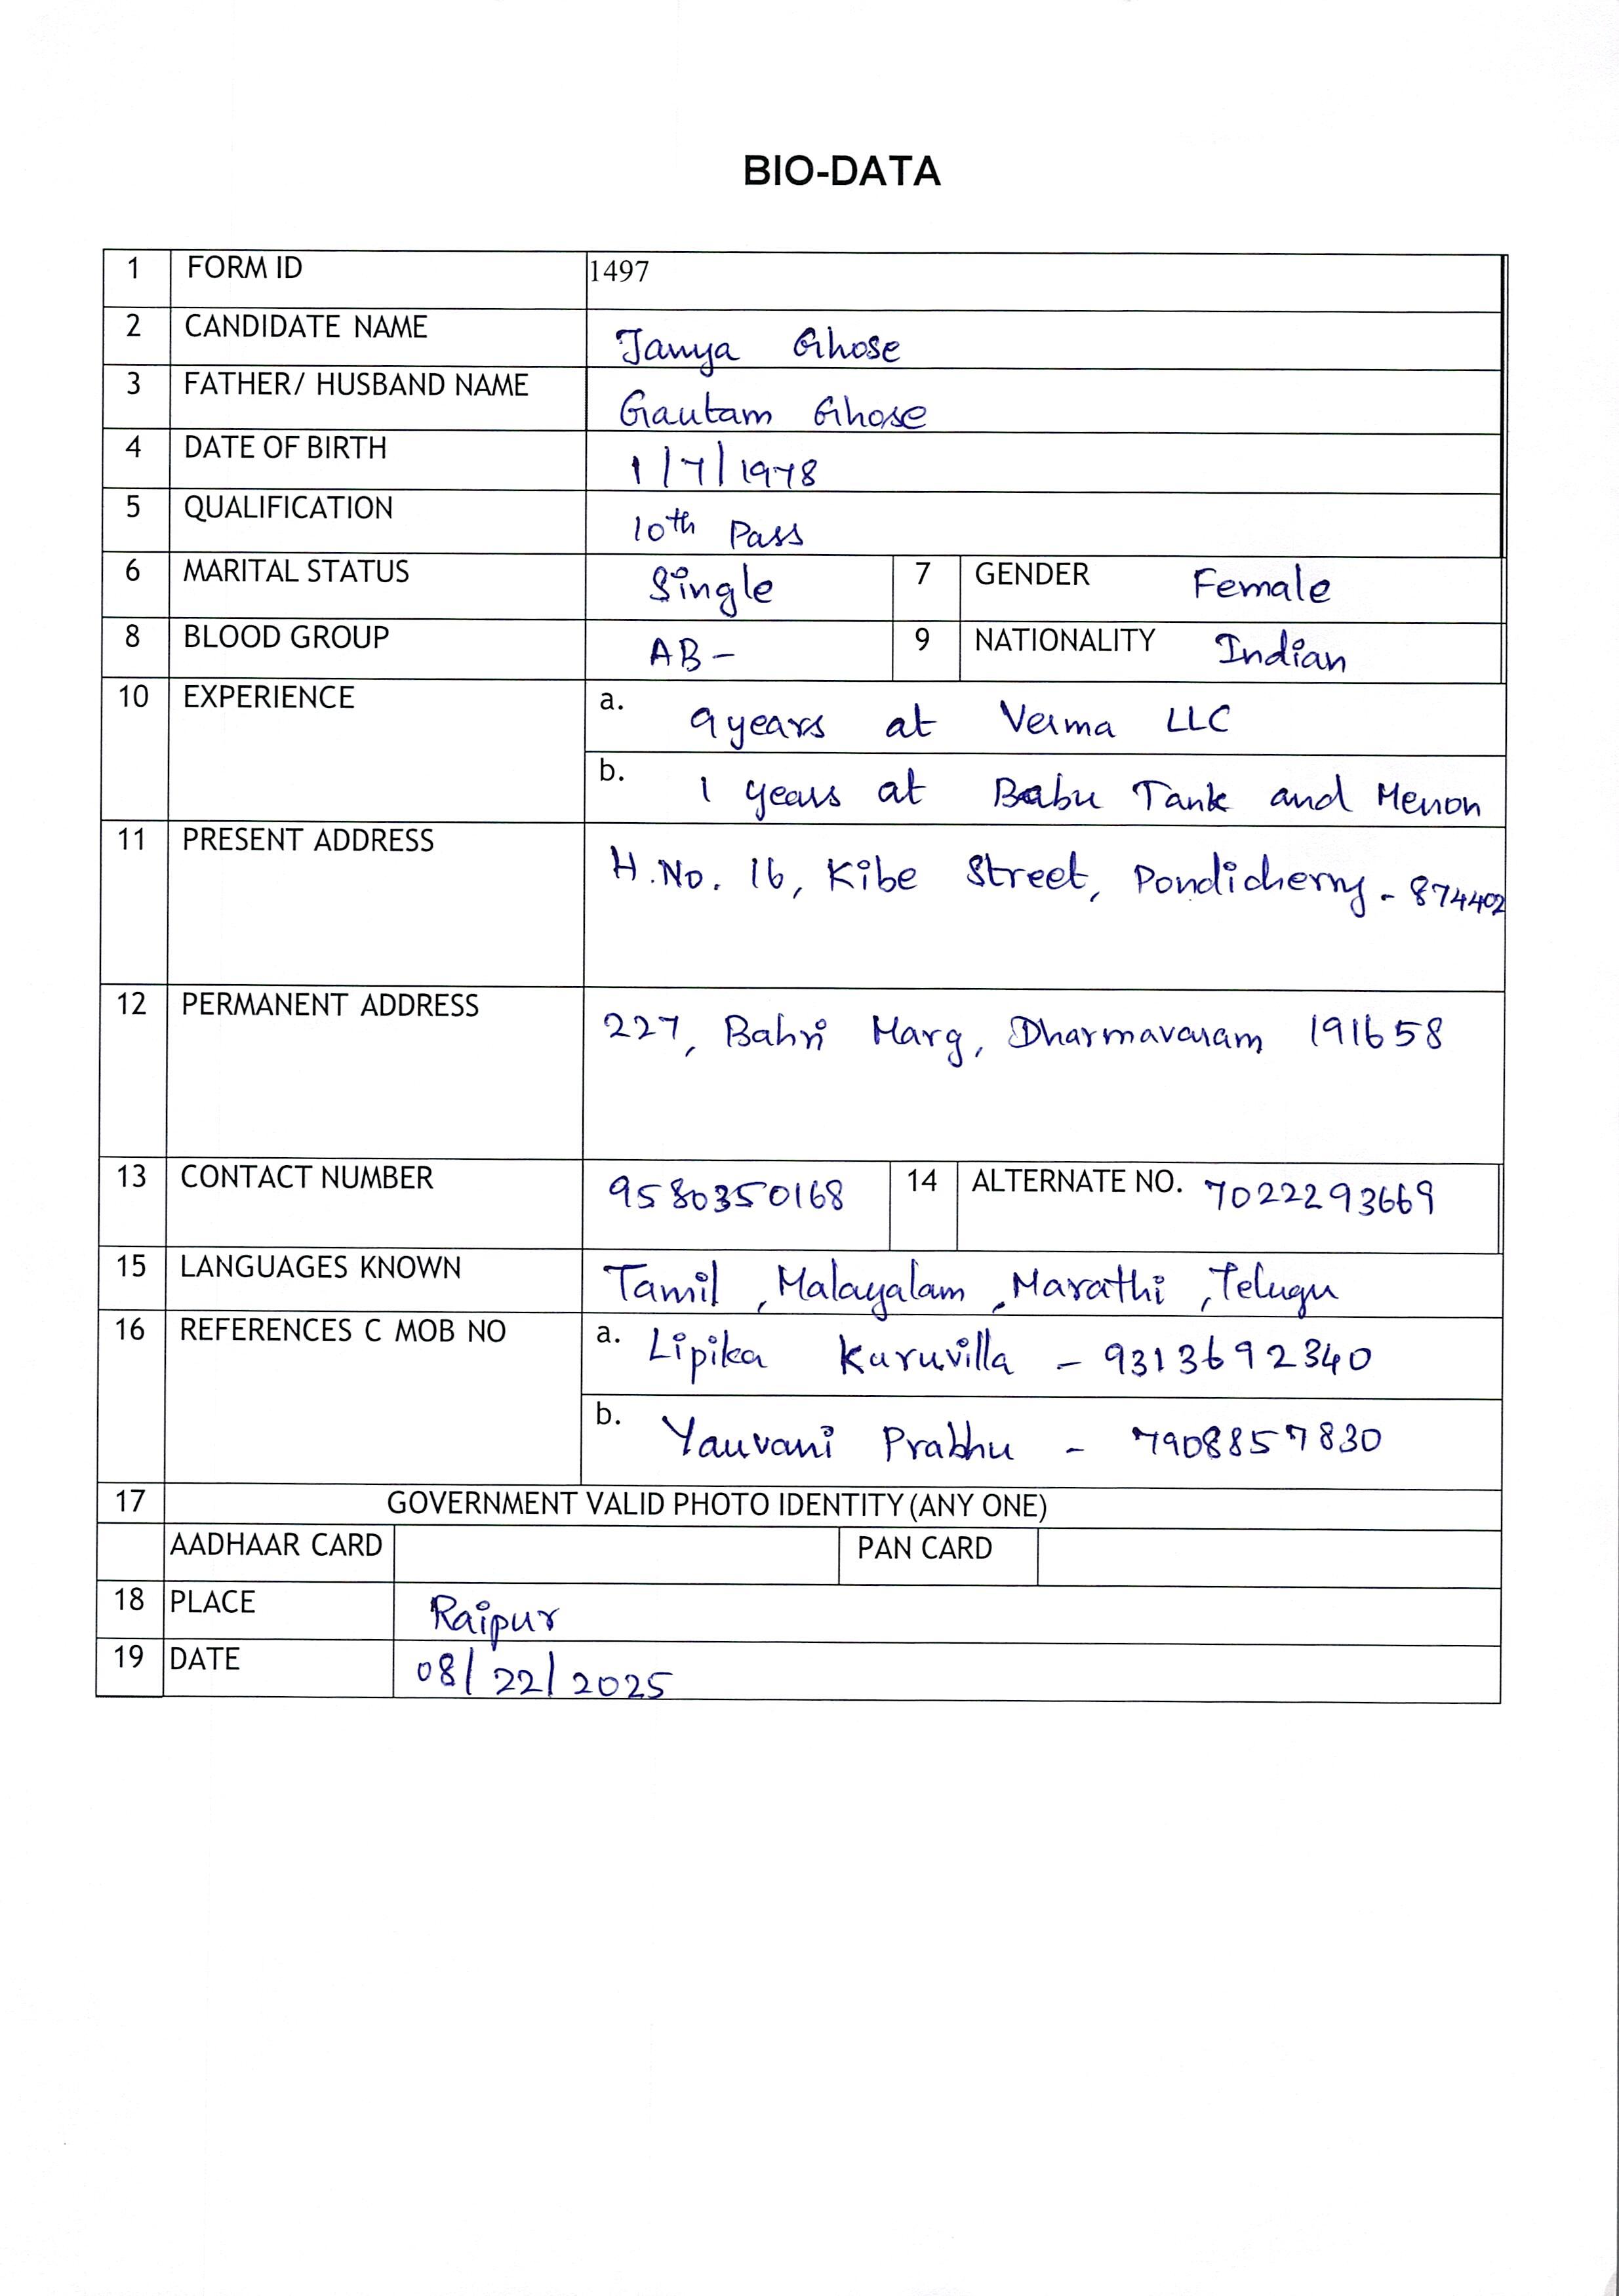 BIO-DATA
1 FORM ID 1497
2 CANDIDATE NAME Tanya Ghose
3 FATHER/ HUSBAND NAME Gautam Ghose
4 DATE OF BIRTH 1/7/1978
5 QUALIFICATION 10th Pass
6 MARITAL STATUS Single 7 GENDER Female
8 BLOOD GROUP AB- 9 NATIONALITY Indian
10 EXPERIENCE a. 9 years at Verma LLC
b. 1 years at Babu Tank and Menon
11 PRESENT ADDRESS H.No. 16, Kibe Street, Pondicherry - 874402
12 PERMANENT ADDRESS 227, Bahri Marg, Dharmavaram 191658
13 CONTACT NUMBER 9580350168 14 ALTERNATE NO. 7022293669
15 LANGUAGES KNOWN Tamil, Malayalam, Marathi, Telugu
16 REFERENCES C MOB NO a. Lipika Kuruvilla - 9313692340
b. Yauvani Prabhu - 7908857830
17 GOVERNMENT VALID PHOTO IDENTITY (ANY ONE)
AADHAAR CARD PAN CARD
18 PLACE Raipur
19 DATE 08/22/2025